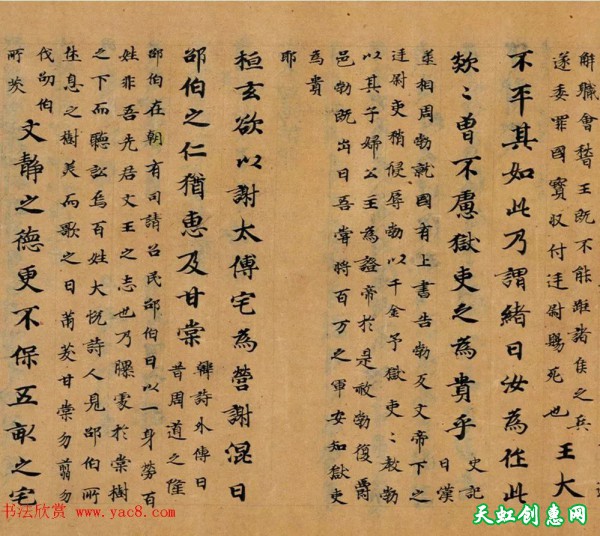 解職會稽王既不能距諸侯之兵
遂委罪國寶収付廷尉賜死也
王大
不平其如此乃謂緒曰汝為任此
欻〻曾不慮獄吏之為貴乎
史記
曰漢
丞相周勃就國有上書告勃反文帝下之
廷尉吏稍侵辱勃以千金予獄吏〻教勃
以其子婦公主為證帝於是赦勃復爵
邑勃既出曰吾嘗將百万之軍安知獄吏
為貴
耶
桓玄欲以謝太傅宅為營謝混曰
邵伯之仁猶惠及甘棠
韓詩外傳曰
昔周道之隆
邵伯在朝有司請召民邵伯曰以一身勞百
姓非吾先居文王之志也乃曝處於棠樹
之下而聽訟焉百姓大悅詩人見邵伯所
坐息之樹美而歌之曰莆茇甘棠勿翦勿
伐劭伯
所茇
文靜之德更不保五畝之宅
书法欣赏 www.yac8.com
天虹创惠网